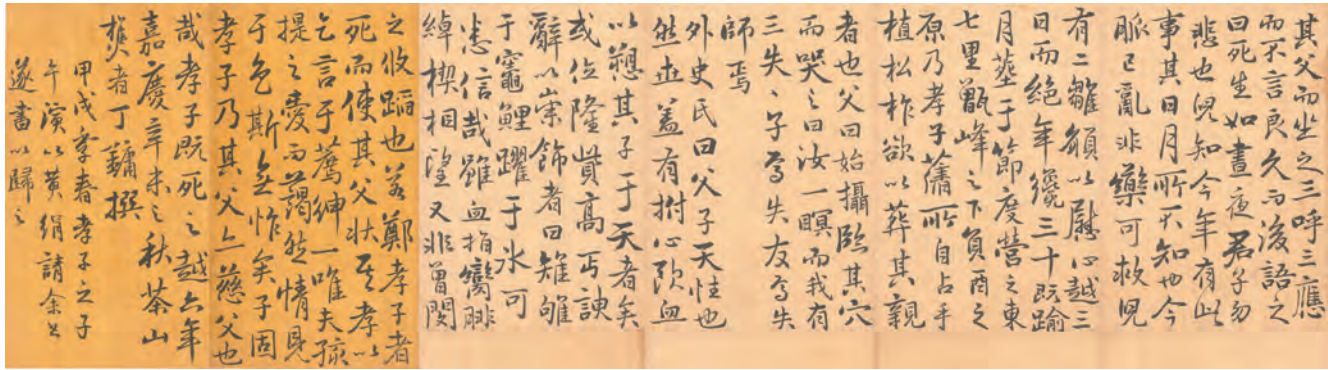 其父而坐之三呼三應
而不言良久而後語之
曰死生如晝夜君子勿
悲也兒知今年有此
事其日月所不知也今
脈已亂非藥可救兒
有二雛願以慰心越三
日而絕年纔三十既踰
月葬于節度營之東
七里甑峰之下負酉之
原乃孝子蕃所自占手
植松柞欲以葬其親
者也父曰始攝臨其穴
而哭之曰汝一瞑而我有
三失失子焉失友焉失
師焉
外史氏曰父子天性也
然世蓋有拊心歐血
以愬其子于天者矣
或位隆貲高丐諛
辭以崇飾者曰雉雊
于竈鯉躍于冰可
恚信哉雖血指臠腓
綽楔相望又非曾閔
之收蹈也若鄭孝子者
死而使其父狀其孝以
乞言于薦紳一唯夫孩
提之愛而藹然情見
于色斯無怍矣子固
孝子乃其父亦慈父也
哉孝子既死之越六年
嘉慶辛未之秋茶山
樵者丁鏞撰
甲戌季春孝子之子
午演以黃絹請余書
遂書以歸之